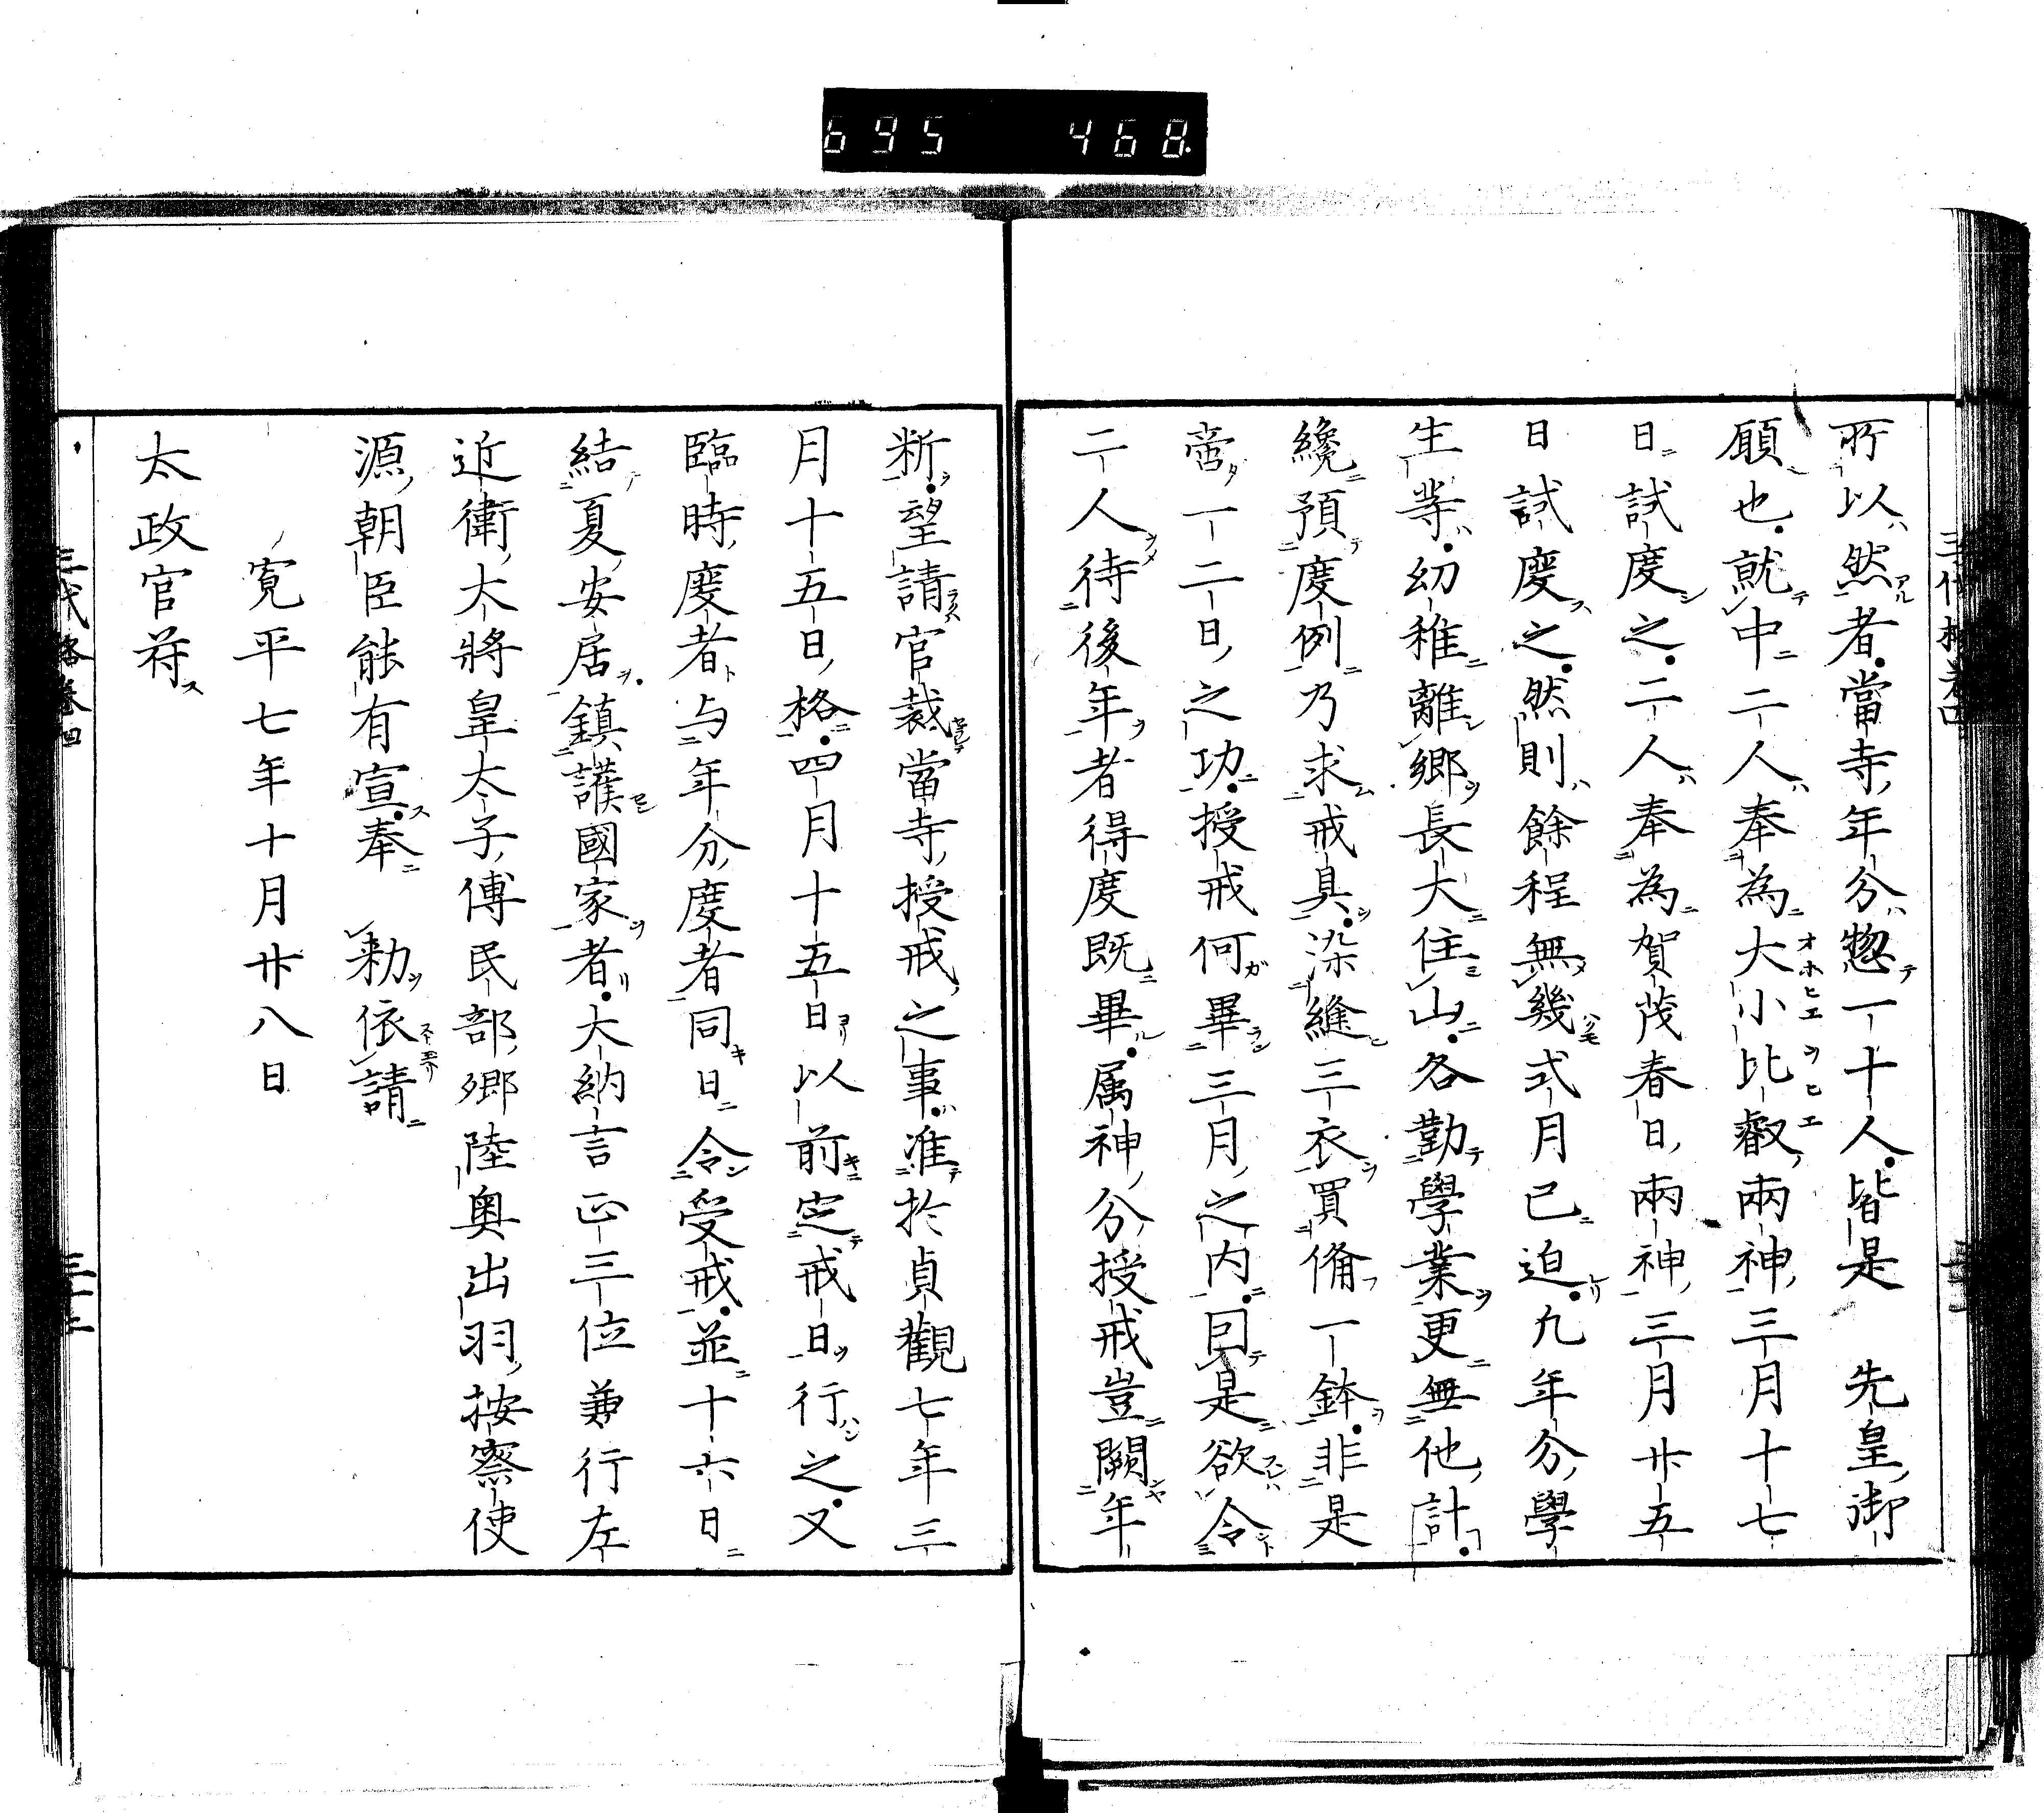 695 468
所以然者當寺年分惣一十人皆是　先皇御
願也就中二人奉為大小比叡兩神三月十七
日試度之二人奉為賀茂春日兩神三月廿五
日試度之然則餘程無幾式月已迫九年分學
生等幼稚離鄉長大住山各勤學業更無他計
纔預度例乃求戒具染縫三衣買俻一鉢非是
啻一二日之功授戒何畢三月之内囙是欲令
二人待後年者得度既畢属神分授戒豈闕年
断望請官裁當寺授戒之事准於貞觀七年三
月十五日格四月十五日以前定戒日行之又
臨時度者与年分度者同日令受戒並十六日
結夏安居鎮護國家者大納言正三位兼行左
近衛大將皇太子傅民部卿陸奥出羽按察使
源朝臣能有宣奉　勅依請
寛平七年十月廿八日
太政官符